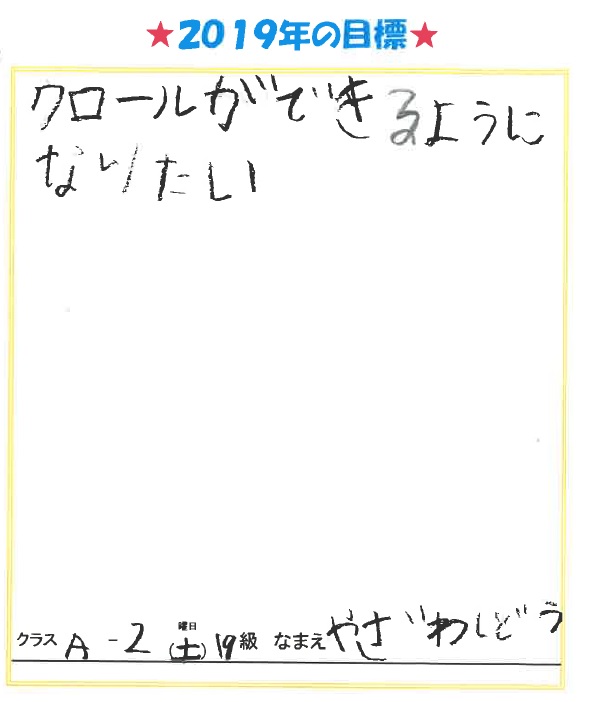 ★2019年の目標★
クロールができるように
なりたい
クラス A-2 曜日(土) 19級 なまえ やざわしどう